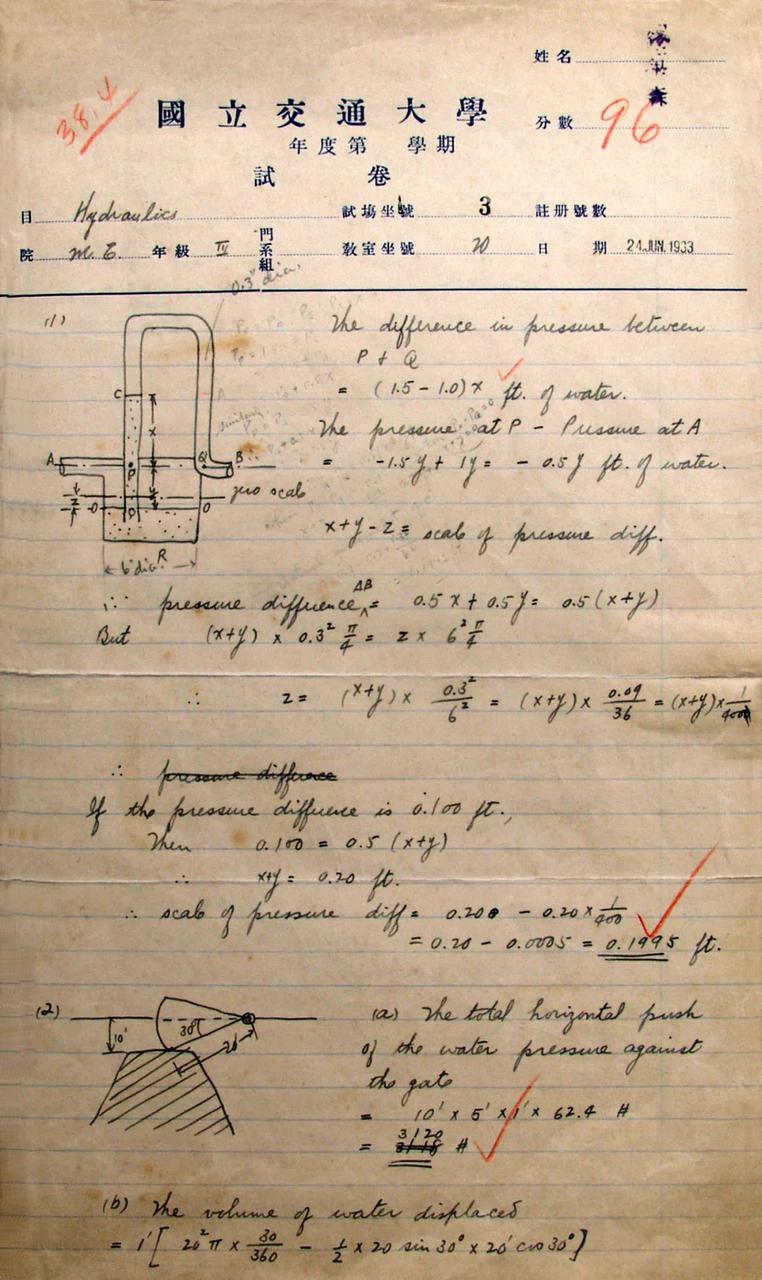 姓名
38.4
國立交通大學
分數 96
年度第 學期
試 卷
目 Hydraulics 試場坐號 3 註册號數
院 M. E. 年級 IV 門系組 教室坐號 20 日 期 24.JUN.1933
0.3" dia.
(1)
The difference in pressure between
P + Q
= (1.5 - 1.0)x ft. of water.
The pressure at P - Pressure at A
= -1.5y + 1y = -0.5y ft. of water.
C
x
A
P
Q
B
zero scale
y
z
O
D
O
R
6" dia.
x+y-z = scale of pressure diff.
∴ pressure difference AB = 0.5x + 0.5y = 0.5(x+y)
But (x+y) x 0.3² π/4 = z x 6² π/4
∴ z = (x+y) x 0.3²/6² = (x+y) x 0.09/36 = (x+y) x 1/400
∴ pressure difference
If the pressure difference is 0.100 ft.,
Then 0.100 = 0.5 (x+y)
∴ x+y = 0.20 ft.
∴ scale of pressure diff = 0.200 - 0.20 x 1/400
= 0.20 - 0.0005 = 0.1995 ft.
(2)
10'
30°
20'
(a) The total horizontal push
of the water pressure against
the gate
= 10' x 5' x 1' x 62.4 #
= 3120 #
(b) The volume of water displaced
= 1' [ 20² π x 30/360 - 1/2 x 20 sin 30° x 20' cos 30° ]